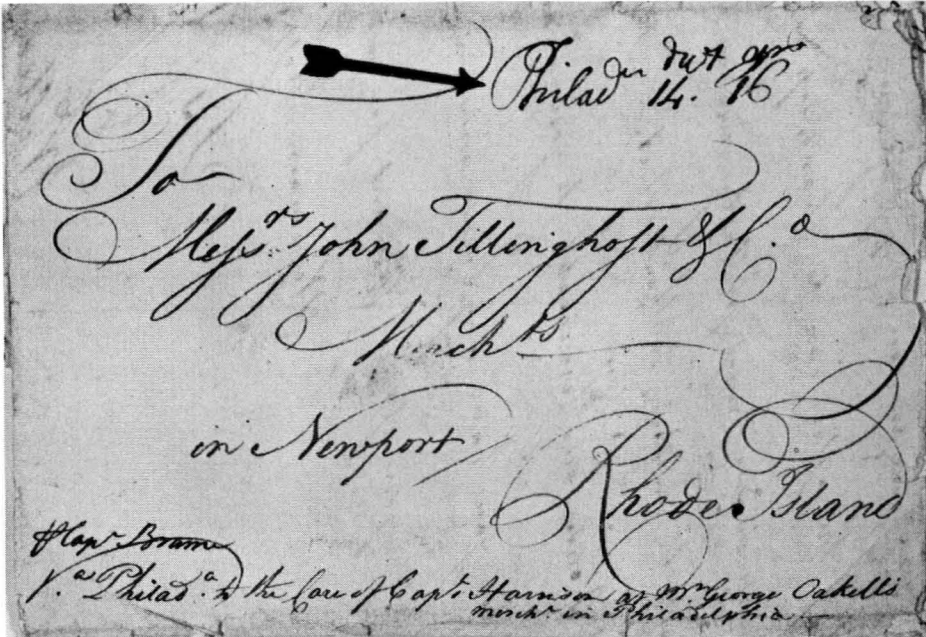 Philadᵃ dwt grs
14. 16
To
Messrs John Tillinghast & Cᵒ.
Merchts
in Newport
Rhode Island
⅌ Capt Brame
Vᵃ Philadᵃ. to the Care of Capt Harrison at Mr George Oakells
mercht. in Philadelphia